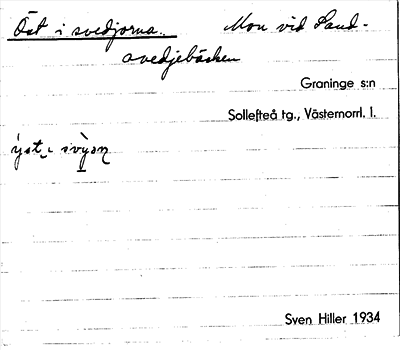 Öst i svedjorna. Mon vid Sand-
svedjebäcken
Graninge s:n
Sollefteå tg., Västernorrl. l.
Sven Hiller 1934